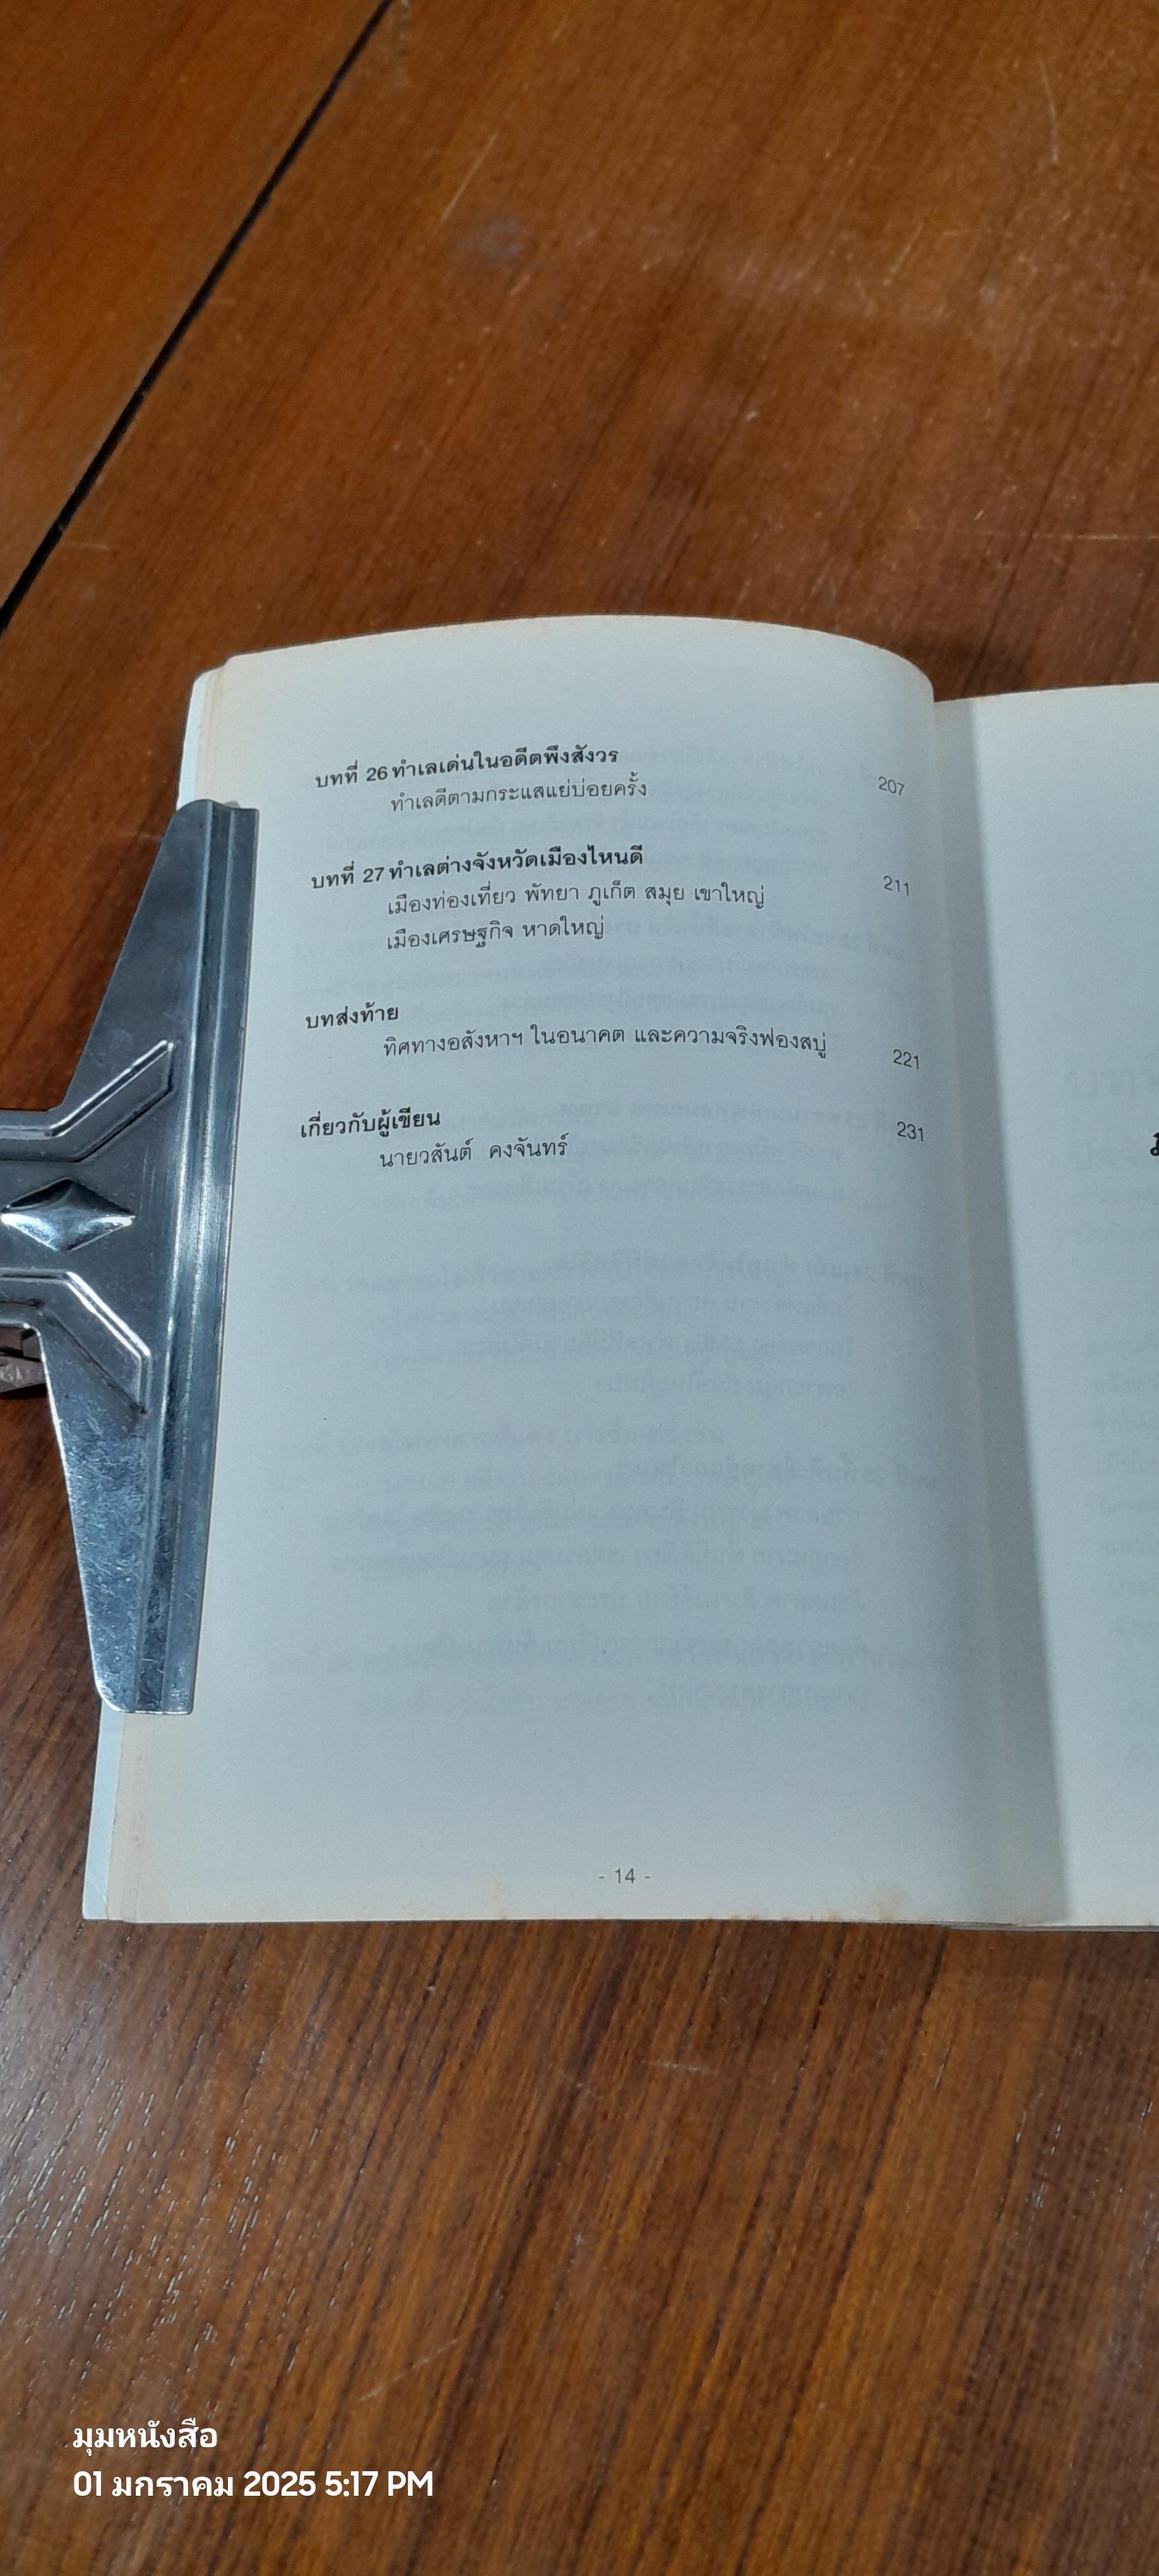 บทที่ 26 ทำเลเด่นในอดีตพึงสังวร 207
ทำเลดีตามกระแสแย่บ่อยครั้ง
บทที่ 27 ทำเลต่างจังหวัดเมืองไหนดี 211
เมืองท่องเที่ยว พัทยา ภูเก็ต สมุย เขาใหญ่
เมืองเศรษฐกิจ หาดใหญ่
บทส่งท้าย
ทิศทางอสังหาฯ ในอนาคต และความจริงฟองสบู่ 221
เกี่ยวกับผู้เขียน 231
นายวสันต์ คงจันทร์
- 14 -
มุมหนังสือ
01 มกราคม 2025 5:17 PM